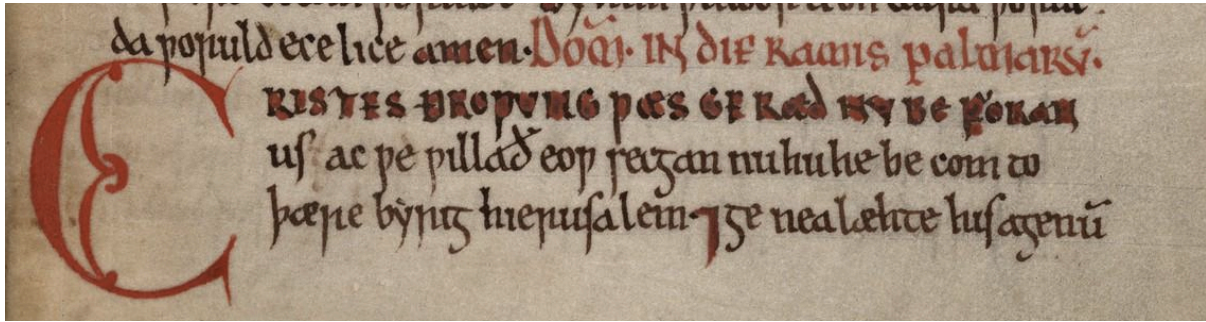 da ƿoruld ece lice amen· Dom̄· IN DIE RAMIS palmarū·
CRISTES ÐROǷVNG ǷÆS GE RÆD NV BE FORAN
us ac ƿe ƿillað eoƿ secgan nu hu he be com to
þære byrig hierusalem· ⁊ ge nealæhte his agenū